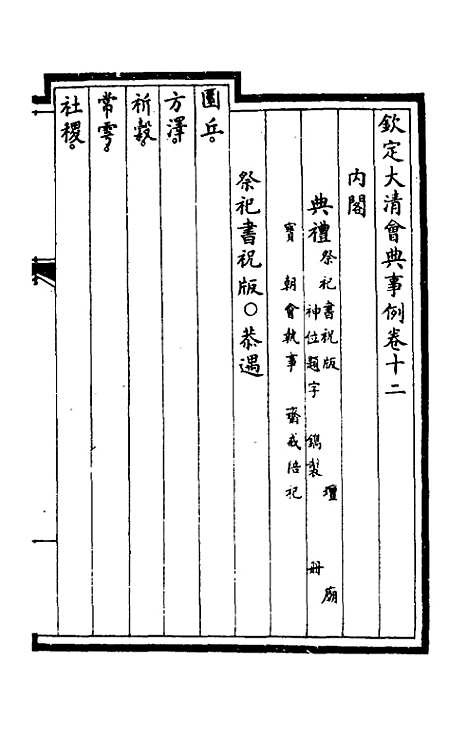 欽定大清會典事例卷十二
內閣
典禮 祭祀書祝版 壇 廟
神位題字 鐫製 冊
寶 朝會執事 齋戒陪祀
祭祀書祝版○恭遇
圜丘。
方澤。
祈穀。
常雩。
社稷。